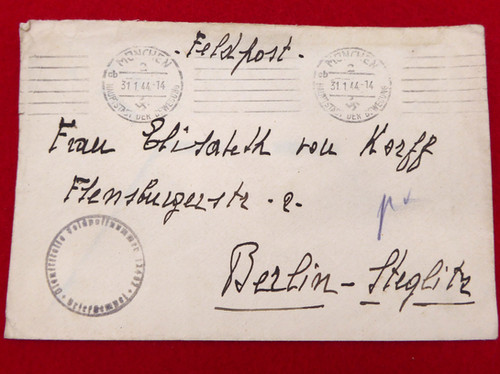 - Feldpost -
MÜNCHEN
2
cb
31.1.44.-14
HAUPTSTADT DER BEWEGUNG
MÜNCHEN
2
cb
31.1.44.-14
HAUPTSTADT DER BEWEGUNG
Frau Elisabeth von Korff
Flensburgerstr. 2.
Berlin - Steglitz
Dienststelle Feldpostnummer
Briefstempel